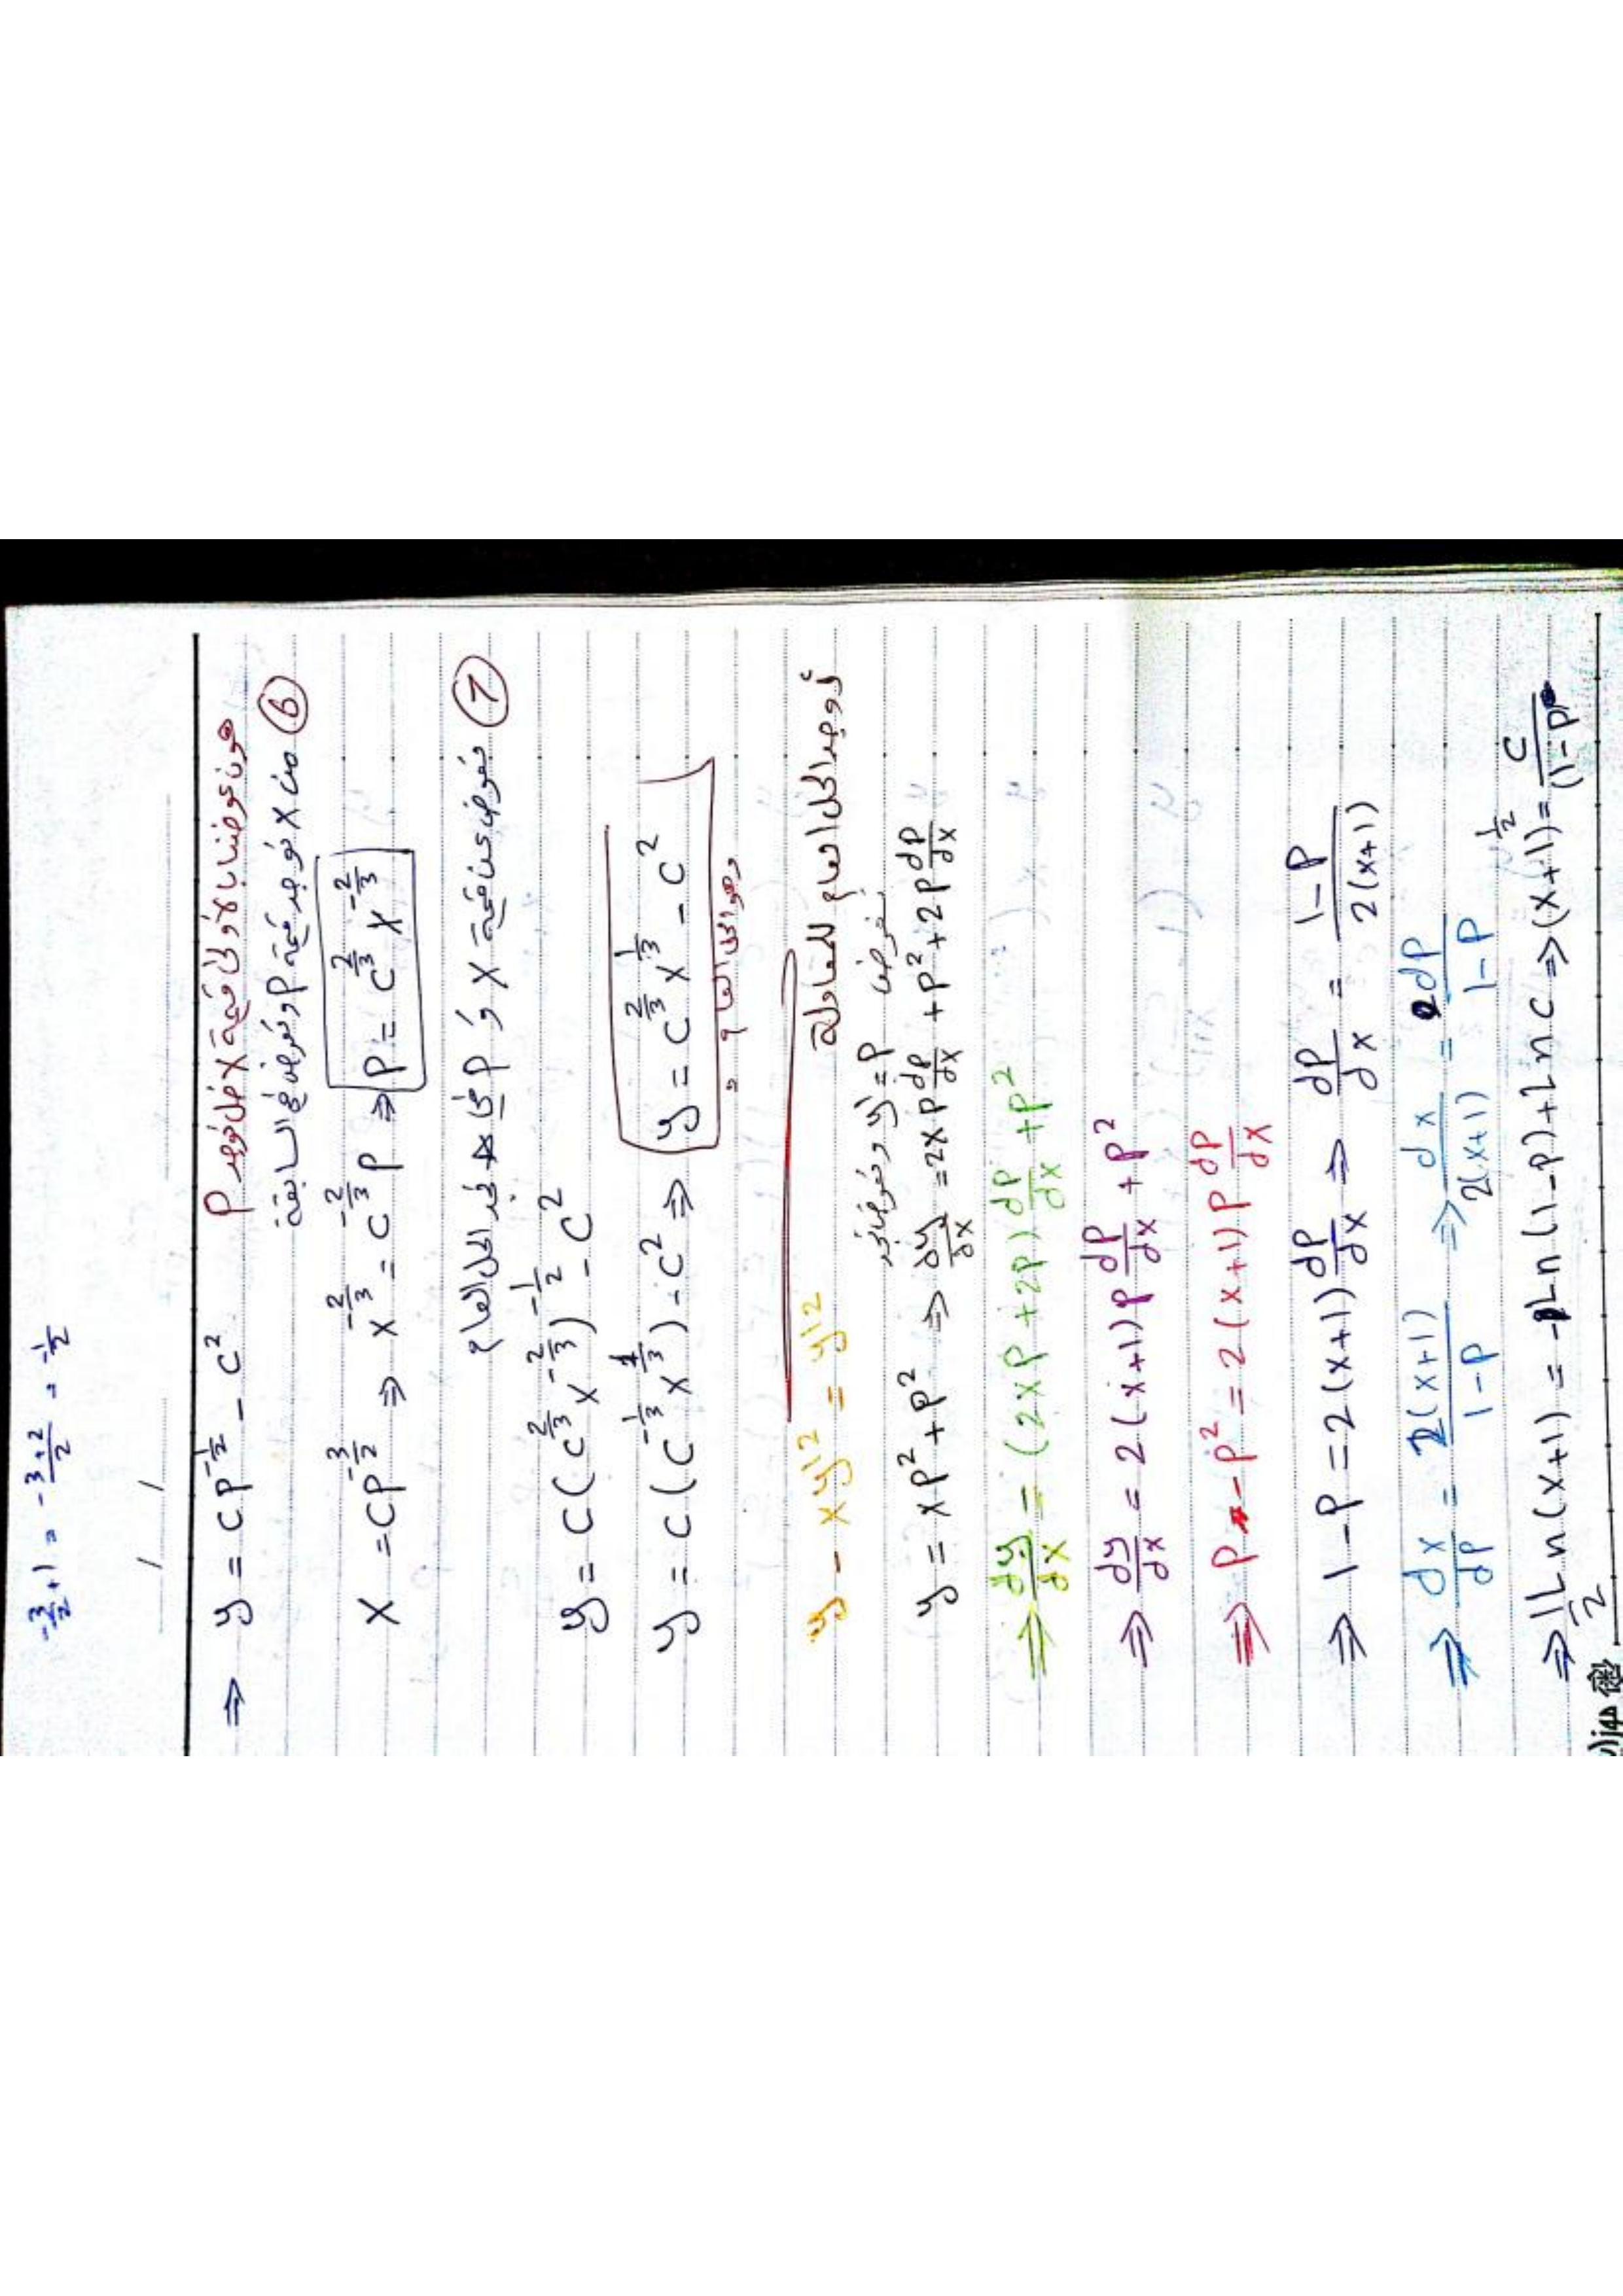 -3/2 + 1 = (-3+2)/2 = -1/2
/ /
⇒ y = CP^(-1/2) - C² هون عوضنا بالأولى قيمة x ضل نوجد P
⑥ من x نوجد قيمة P ونعوض في السابقة
x = CP^(-3/2) ⇒ x^(-2/3) = C^(-2/3) P ⇒ P = C^(2/3) x^(-2/3)
⑦ نعوض عن قيمة x و P في نجد الحل العام
y = C(C^(2/3) x^(-2/3))^(-1/2) - C²
y = C(C^(-1/3) x^(1/3)) - C² ⇒ y = C^(2/3) x^(1/3) - C²
وهو الحل العام
أوجد الحل العام للمعادلة
y - xy'² = y'²
نفرض y' = P ونعوض نجد
y = xP² + P² ⇒ dy/dx = 2xP dP/dx + P² + 2P dP/dx
⇒ dy/dx = (2xP + 2P) dP/dx + P²
⇒ dy/dx = 2(x+1)P dP/dx + P²
⇒ P - P² = 2(x+1)P dP/dx
⇒ 1 - P = 2(x+1) dP/dx ⇒ dP/dx = (1-P)/(2(x+1))
⇒ dx/dP = 2(x+1)/(1-P) ⇒ dx/(2(x+1)) = dP/(1-P)
⇒ 1/2 Ln(x+1) = -Ln(1-P) + Ln C ⇒ (x+1)^(1/2) = C/(1-P)